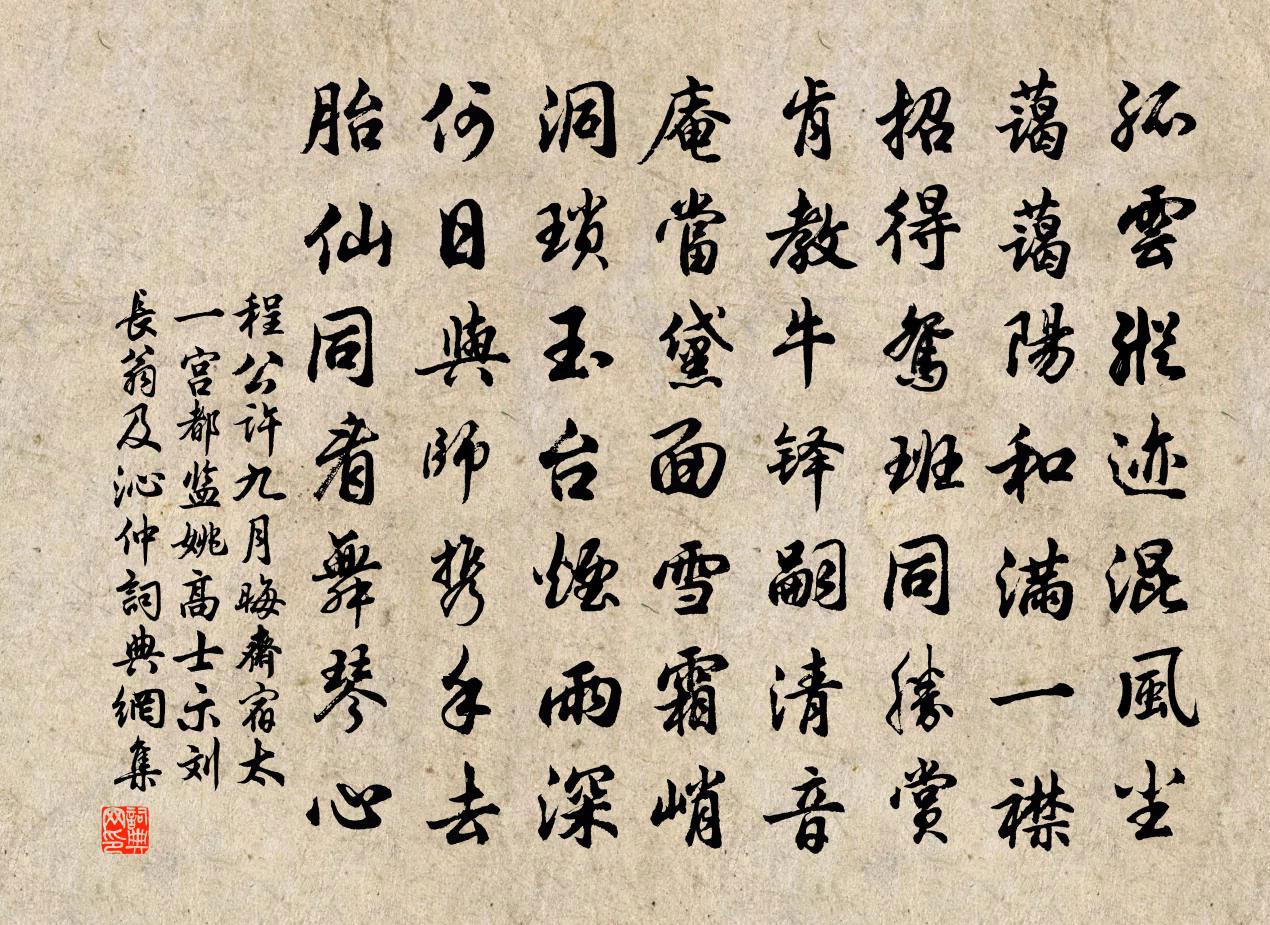 孤雲蹤迹混風尘
藹藹陽和满一襟
招得鴛班同勝赏
肯教牛铎嗣清音
庵當黛面雪霜峭
洞瑣玉台煙雨深
何日與師携手去
胎仙同看舞琴心
程公许九月晦齋宿太
一宫都监姚高士示刘
長翁及沁仲詞典網集
詞典网印